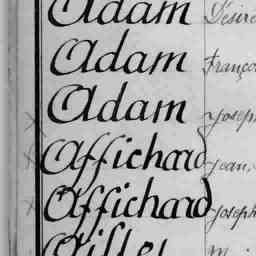 Adam Désiré
Adam Franço
Adam Joseph
Affichard Jean,
Affichard Joseph